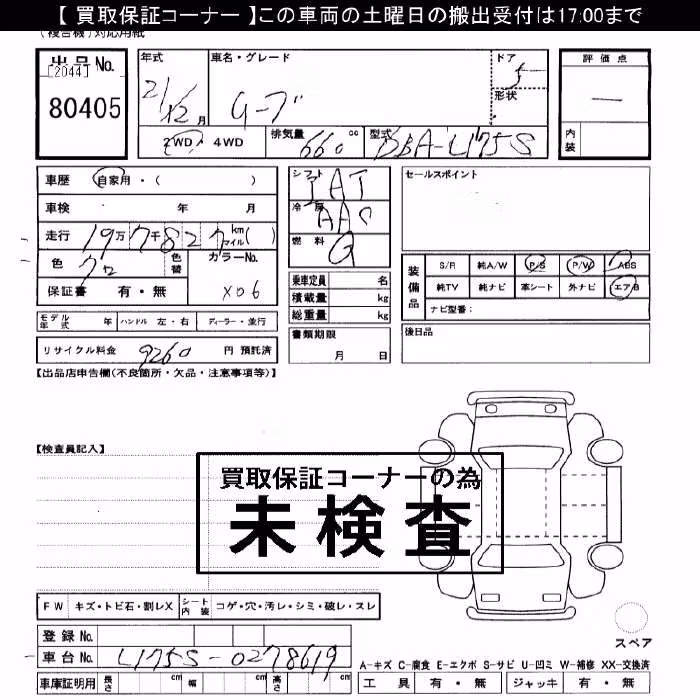 【 買取保証コーナー 】この車両の土曜日の搬出受付は17:00まで
(複合機)対応用紙
出品No.
[2044]
80405
年式
21/12 月
車名・グレード
ドア 5
形状
2WD・4WD
排気量 660 cc
型式 DBA-L175S
評価点
—
内装
車歴 自家用・( )
車検 年 月
走行 19万7千827 kmマイル( )
色
色替
カラーNo.
X06
保証書 有・無
モデル年式 年 ハンドル 左・右 ディーラー・並行
リサイクル料金 9260 円 預託済
シフト
冷房 AAC
燃料 G
乗車定員 名
積載量 kg
総重量 kg
書類期限
月 日
セールスポイント
装備品
S/R 純A/W P/S P/W ABS
純TV 純ナビ 革シート 外ナビ エアB
ナビ型番:
後日品
【出品店申告欄(不良箇所・欠品・注意事項等)】
【検査員記入】
買取保証コーナーの為
未検査
FW キズ・トビ石・割レX シート内装 コゲ・穴・汚レ・シミ・破レ・スレ
スペア
登録No.
車台No. L175S-0278619
A-キズ C-腐食 E-エクボ S-サビ U-凹ミ W-補修 XX-交換済
車庫証明用 長さ cm 幅 cm 高さ cm
工具 有・無 ジャッキ 有・無